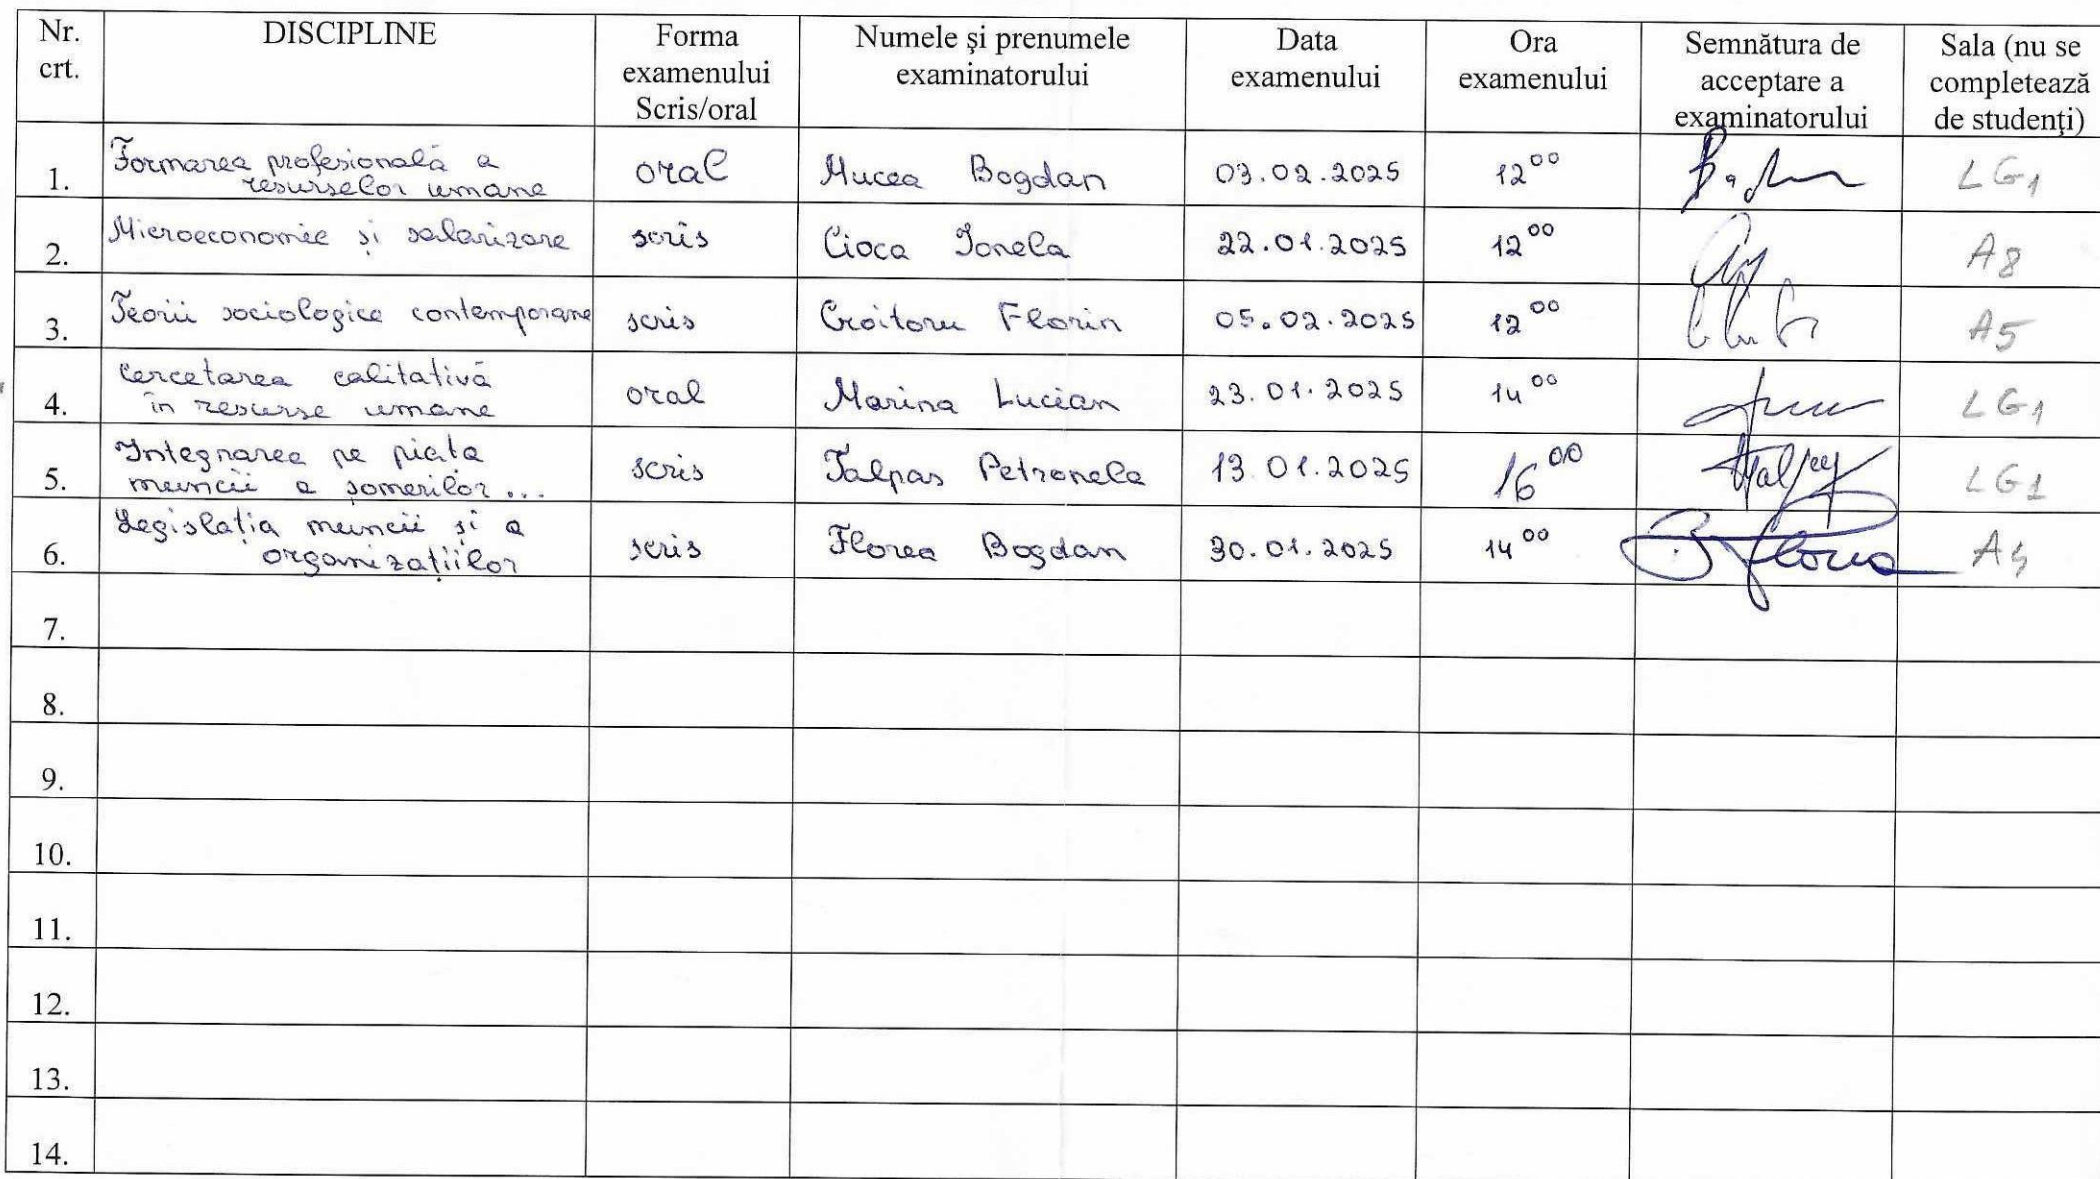 Nr. crt. DISCIPLINE Forma examenului Scris/oral Numele şi prenumele examinatorului Data examenului Ora examenului Semnătura de acceptare a examinatorului Sala (nu se completează de studenţi)
1. Formarea profesională a resurselor umane oral Mucea Bogdan 03.02.2025 12⁰⁰ LG1
2. Microeconomie și salarizare scris Cioca Ionela 22.01.2025 12⁰⁰ A8
3. Teorii sociologice contemporane scris Croitoru Florin 05.02.2025 12⁰⁰ A5
4. Cercetarea calitativă în resurse umane oral Marina Lucian 23.01.2025 14⁰⁰ LG1
5. Integrarea pe piața muncii a șomerilor... scris Talpas Petronela 13.01.2025 16⁰⁰ LG1
6. Legislația muncii și a organizațiilor scris Florea Bogdan 30.01.2025 14⁰⁰ B Florea
7.
8.
9.
10.
11.
12.
13.
14.